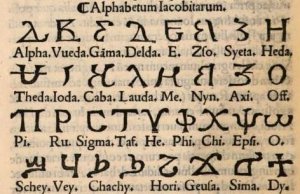 ¶Alphabetum Iacobitarum.
Alpha. Vueda. Gãma. Delda. E. Zſo. Syeta. Heda,
Theda. Ioda. Caba. Lauda. Me. Nyn. Axi. Off.
Ⲡ Ⲣ Ⲥ Ⲧ Ⲩ Ⲫ Ⲭ Ⲯ Ⲱ
Pi. Ru. Sigma. Taf. He. Phi. Chi. Epſi. O.
Ϣ Ϥ Ϧ Ϩ Ϫ Ϭ Ϯ
Schey. Vey. Chachy. Hori. Geuſa. Sima. Dy